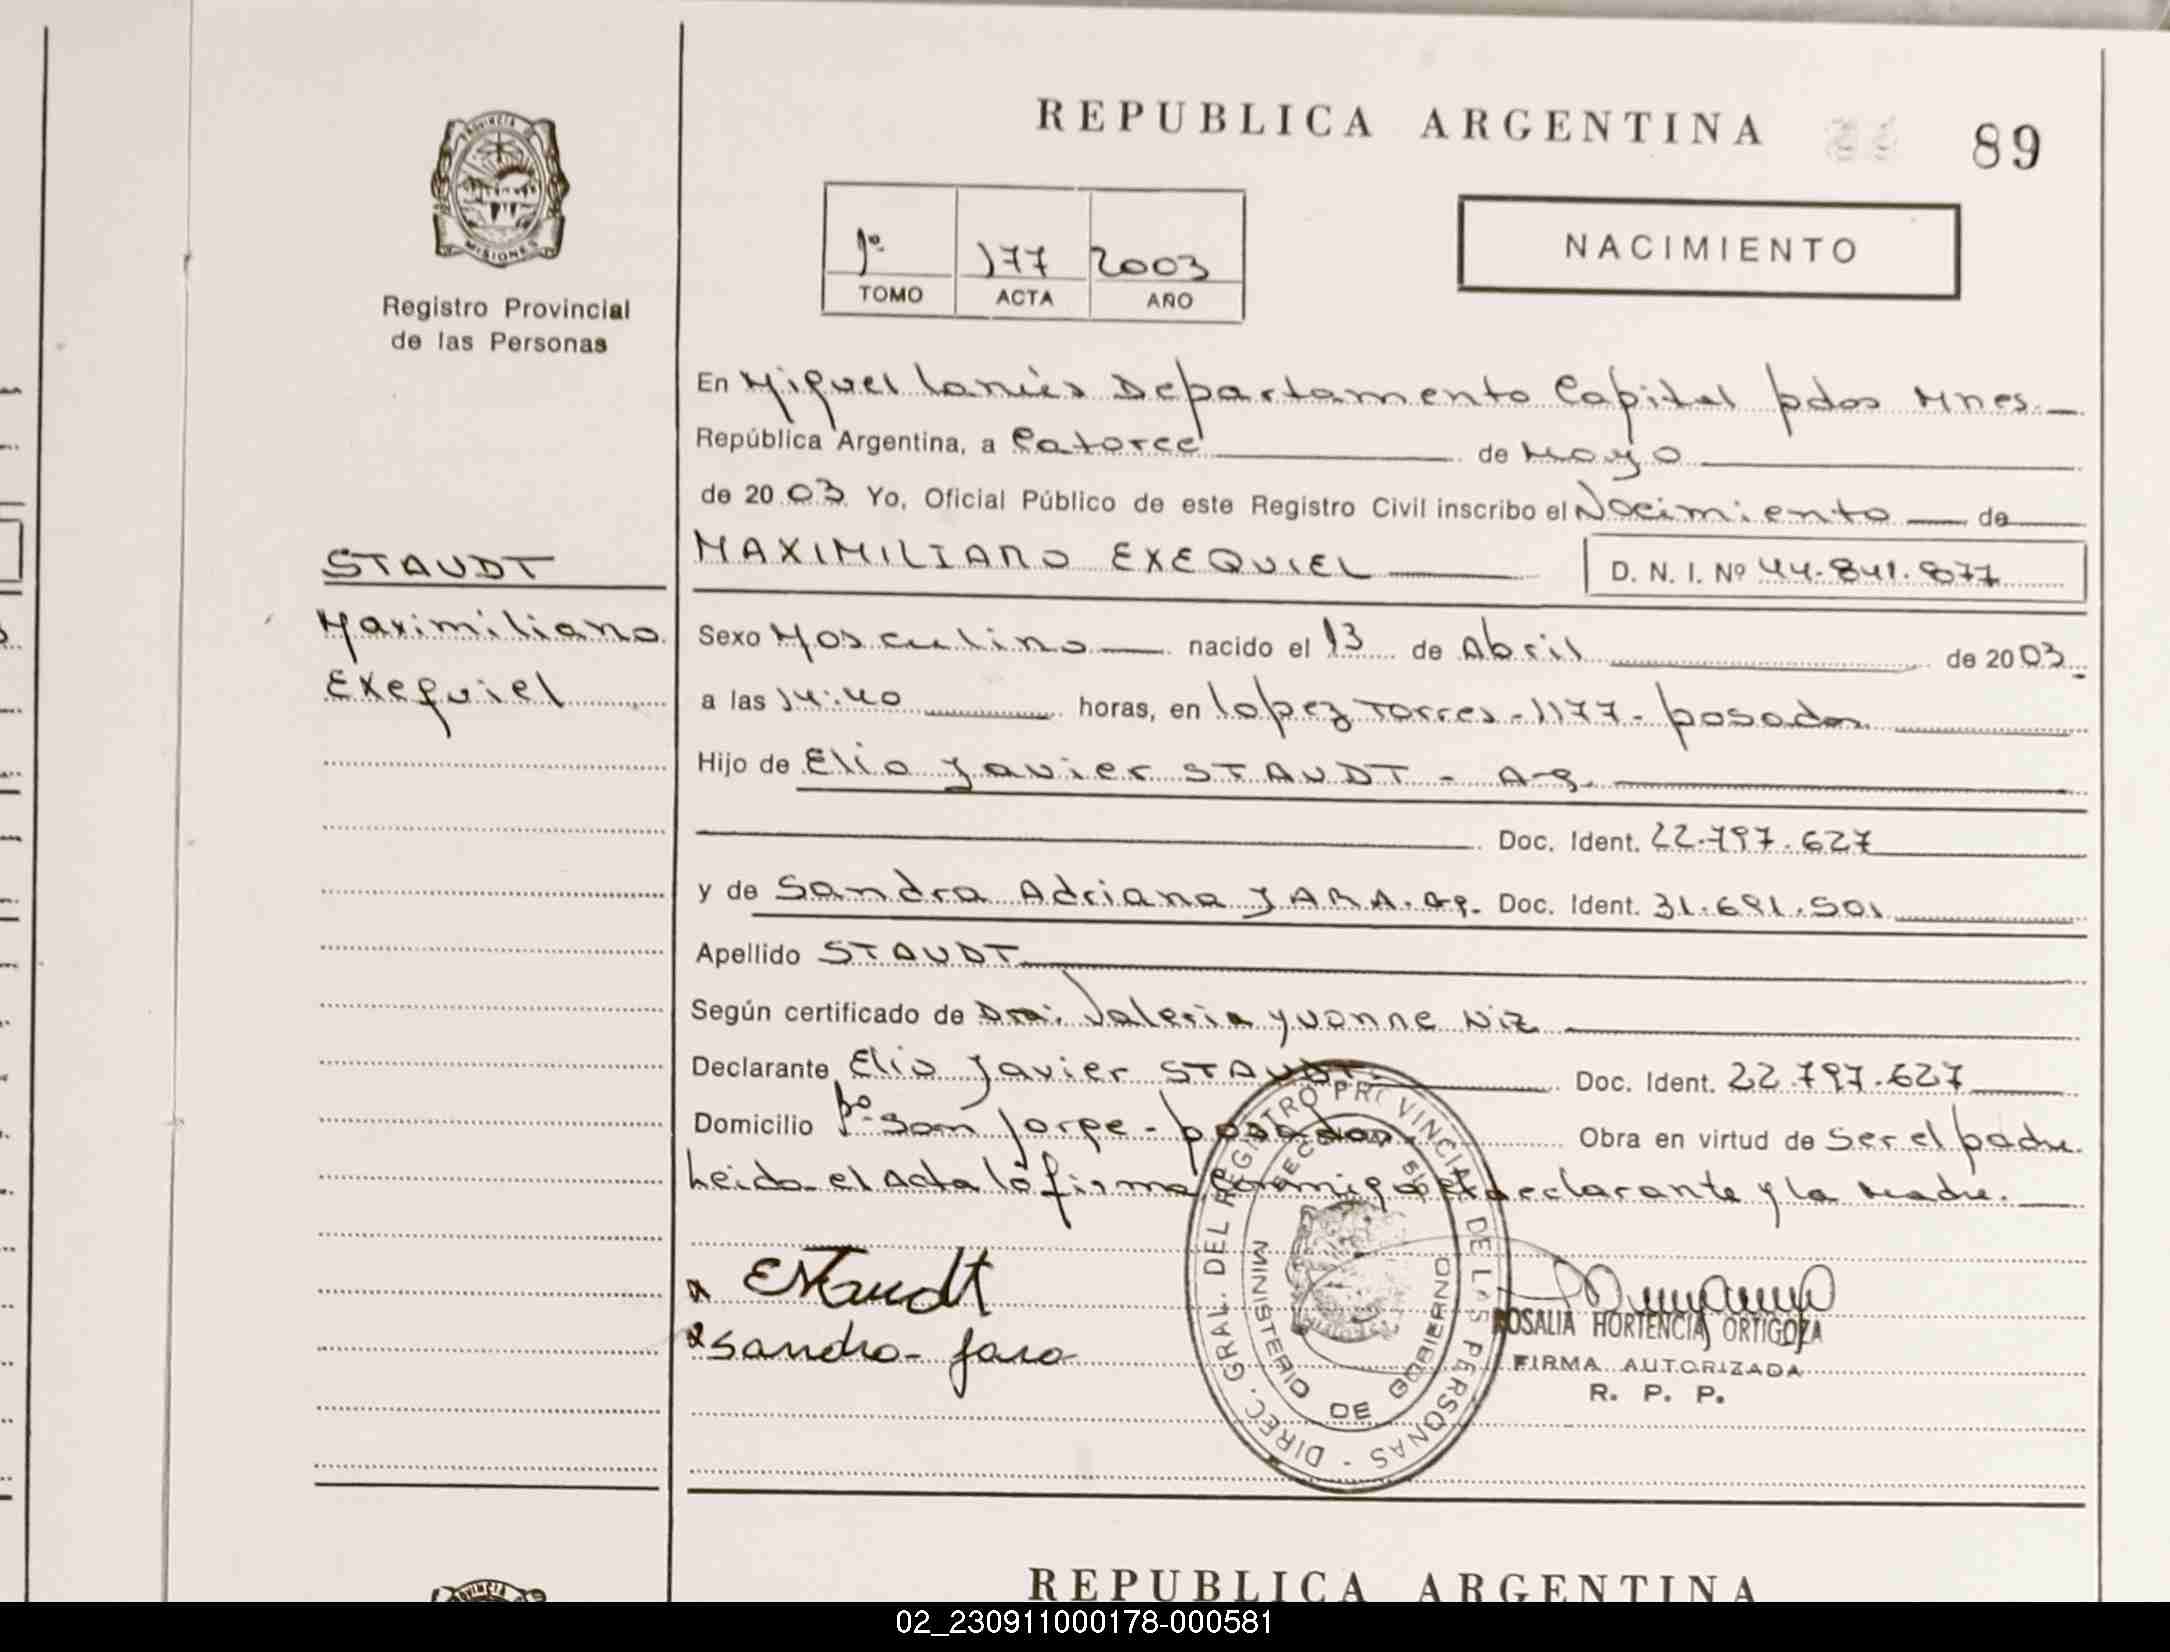 REPUBLICA ARGENTINA
89
PROVINCIA DE
MISIONES
Registro Provincial
de las Personas
1º 177 2003
TOMO ACTA AÑO
NACIMIENTO
En Miguel Lanús Departamento Capital pdas Mnes.
República Argentina, a Catorce de Mayo
de 20 03 Yo, Oficial Público de este Registro Civil inscribo el Nacimiento de
STAUDT
MAXIMILIANO EXEQUIEL
D. N. I. Nº 44.841.877
Maximiliano
Sexo Masculino nacido el 13 de Abril de 20 03
Exequiel
a las 14:40 horas, en Lopez Torres-1177-posadas
Hijo de Elio Javier STAUDT - Ag.
Doc. Ident. 22.797.627
y de Sandra Adriana JARA. ag. Doc. Ident. 31.691.501
Apellido STAUDT
Según certificado de Dra: Valeria Yvonne Niz
Declarante Elio Javier STAUDT Doc. Ident. 22.797.627
Domicilio Bº San Jorge - posadas Obra en virtud de Ser el padre
Leida el Acta lo firma Conmigo el declarante y la Madre.
DIREC. GRAL. DEL REGISTRO PROVINCIAL DE LAS PERSONAS -
MINISTERIO DE GOBIERNO
x EStaudt
x Sandra Jara
ROSALIA HORTENCIA ORTIGOZA
FIRMA AUTORIZADA
R. P. P.
PROVINCIA
REPUBLICA ARGENTINA
02_230911000178-000581